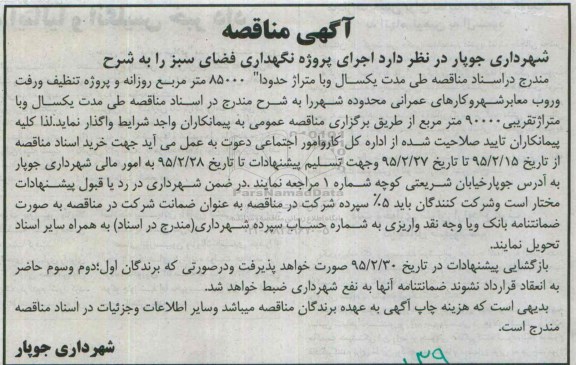 آگهی مناقصه
شهرداری جوپار در نظر دارد اجرای پروژه نگهداری فضای سبز را به شرح
مندرج دراسناد مناقصه طی مدت یکسال وبا متراژ حدودا" ۸۵۰۰۰ متر مربع روزانه و پروژه تنظیف ورفت
وروب معابرشهروکارهای عمرانی محدوده شهررا به شرح مندرج در اسناد مناقصه طی مدت یکسال وبا
متراژتقریبی۹۰۰۰۰ متر مربع از طریق برگزاری مناقصه عمومی به پیمانکاران واجد شرایط واگذار نماید.لذا کلیه
پیمانکاران تایید صلاحیت شده از اداره کل کاروامور اجتماعی دعوت به عمل می آید جهت خرید اسناد مناقصه
از تاریخ ۹۵/۲/۱۵ تا تاریخ ۹۵/۲/۲۷ وجهت تسلیم پیشنهادات تا تاریخ ۹۵/۲/۲۸ به امور مالی شهرداری جوپار
به آدرس جوپارخیابان شریعتی کوچه شماره ۱ مراجعه نمایند .در ضمن شهرداری در رد یا قبول پیشنهادات
مختار است وشرکت کنندگان باید ۵٪ سپرده شرکت در مناقصه به عنوان ضمانت شرکت در مناقصه به صورت
ضمانتنامه بانک ویا وجه نقد واریزی به شماره حساب سپرده شهرداری(مندرج در اسناد) به همراه سایر اسناد
تحویل نمایند.
بازگشایی پیشنهادات در تاریخ ۹۵/۲/۳۰ صورت خواهد پذیرفت ودرصورتی که برندگان اول؛دوم وسوم حاضر
به انعقاد قرارداد نشوند ضمانتنامه آنها به نفع شهرداری ضبط خواهد شد.
بدیهی است که هزینه چاپ آگهی به عهده برندگان مناقصه میباشد وسایر اطلاعات وجزئیات در اسناد مناقصه
مندرج است.
شهرداری جوپار
ParsNamadData